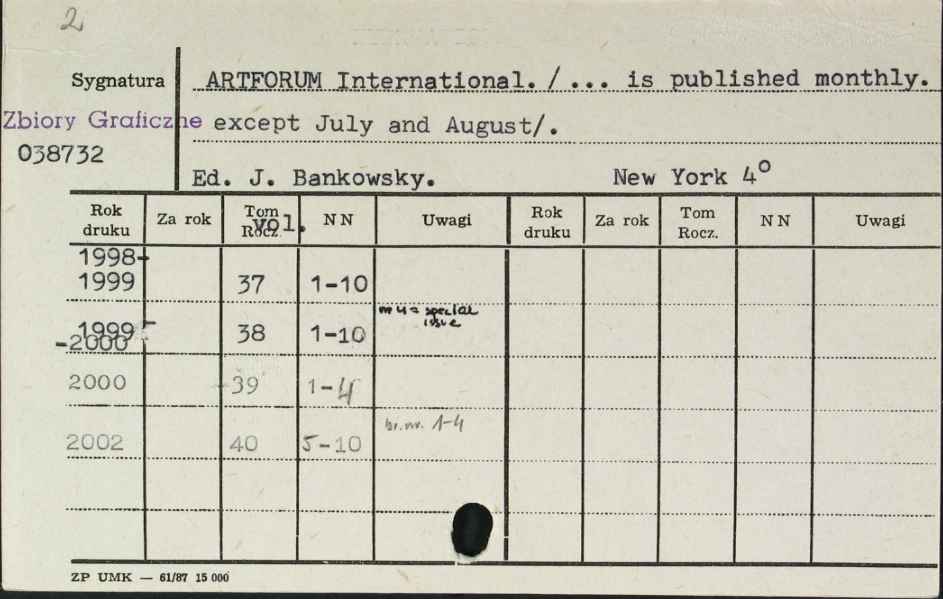 2
Sygnatura ARTFORUM International./... is published monthly.
Zbiory Graficzne except July and August/.
038732
Ed. J. Bankowsky. New York 4°
Rok druku Za rok Tom Rocz. vol. NN Uwagi Rok druku Za rok Tom Rocz. NN Uwagi
1998-
1999 37 1-10
= special
issue
1999-
-2000 38 1-10
2000 39 1-4
br. nr. 1-4
2002 40 5-10
ZP UMK — 61/87 15 000